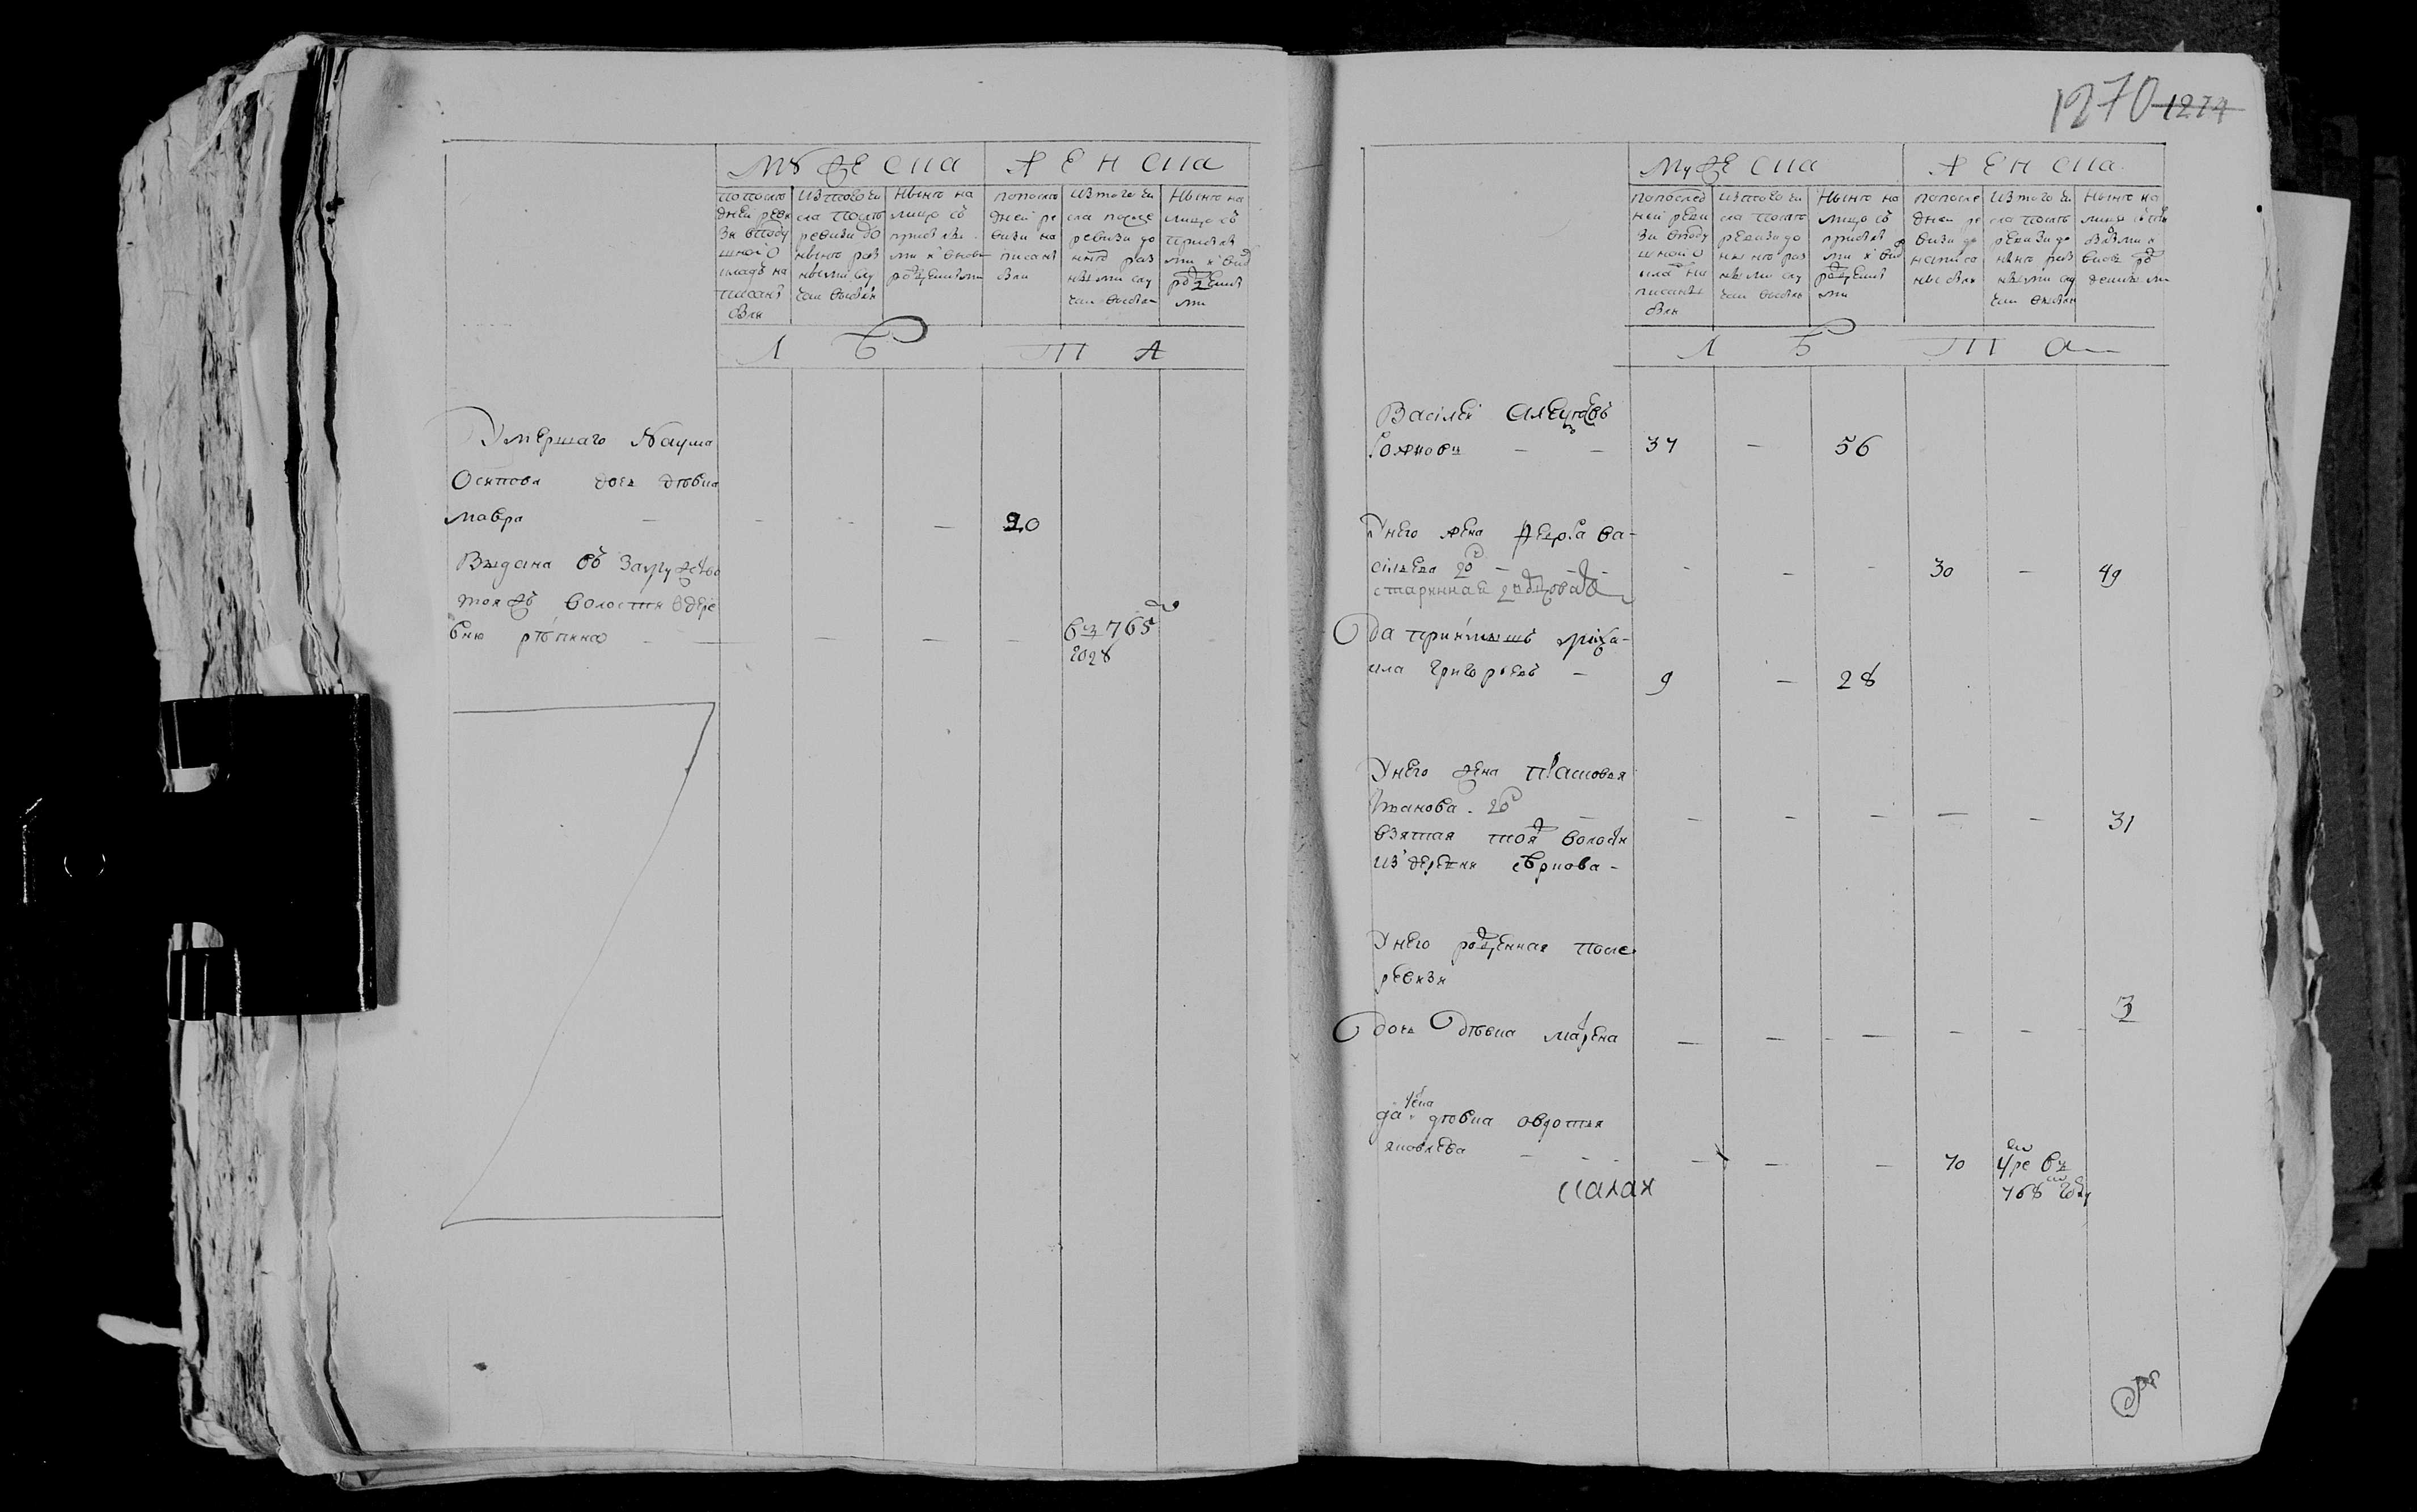 Мꙋжеска
Женска
По после
дней реви
зи в поду
шной о
кладъ на
писанъ
были
Из того чи
сла после
ревизи до
ныне раз
ными слу
чаи выбы
Ныне на
лицо съ
прибылы
ми и внов
рожденными
По после
дней ре
визи на
писанъ
были
Из того чи
сла после
ревизи до
ныне раз
ными слу
чаи выбы
Ныне на
лицо съ
прибылы
ми и внов
рожденны
ми
Л ѣ т а
Умершаго Наума
Осипова дочь дѣвка
Мавра — — — — 20
Выдана въ замужство
той жъ волости в дере
вню рѣпина — — — — — въ 765м
годꙋ
1270 1274
Мужеска
Женска
По послед
ней реви
зи в поду
шной о
клад на
писаны
были
Из того чи
сла после
ревизи до
ныне раз
ными слу
чаи выбы
Ныне на
лицо съ
прибылы
ми и внов
рожденны
ми
По после
дней ре
визи
написа
ны были
Из того чи
сла после
ревизи до
ныне раз
ными слу
чаи выбы
Ныне на
лицо
Л ѣ т а
Василей Алексѣевъ
— — 37 — 56
У него жена Ва-
сильева — — — 30 — 49
старинная
Да приимышъ Миха-
ила Григорьевъ — 9 — 28
У него жена Прасковья
Иванова — — — — — — 31
взятая той волости
из деревни
У него рожденная после
ревизи
дочь дѣвка Марена — — — — — 3
да дѣвка Авдотья
Яковлева — — — — — 70 умре въ
768м годꙋ